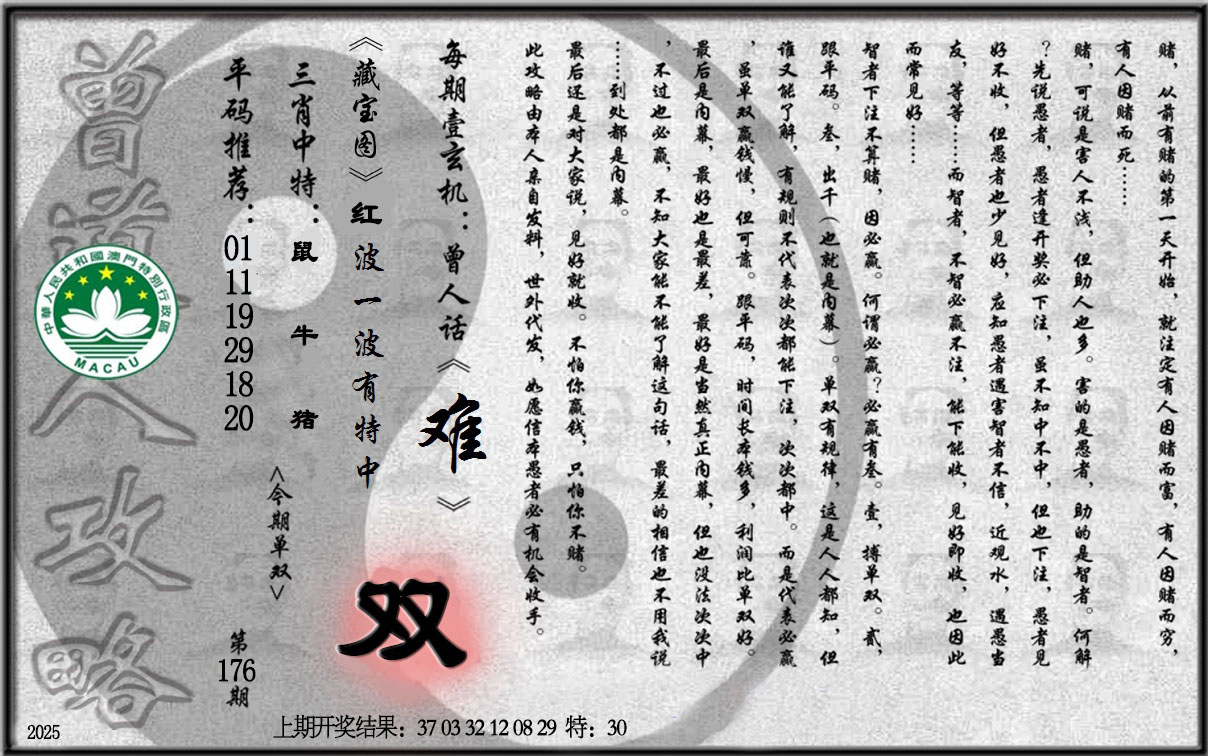 赌，从前有赌的第一天开始，就注定有人因赌而富，有人因赌而穷，
有人因赌而死……
赌，可说是害人不浅，但助人也多。害的是愚者，助的是智者。何解
？先说愚者，愚者逢开奖必下注，虽不知中不中，但也下注，愚者见
好不收，但愚者也少见好，应知愚者遇害智者不信，近观水，遇愚当
友，等等……而智者，不智必赢不注，能下能收，见好即收，也因此
而常见好……
智者下注不算赌，因必赢。何谓必赢？必赢有叁。壹，搏单双。贰，
跟平码。叁，出千（也就是内幕）。单双有规律，这是人人都知，但
谁又能了解，有规则不代表次次都能下注，次次都中。而是代表必赢
，虽单双赢钱慢，但可靠。跟平码，时间长本钱多，利润比单双好。
最后是内幕，最好也是最差，最好是当然真正内幕，但也没法次次中
，不过也必赢，不知大家能不能了解这句话，最差的相信也不用我说
……到处都是内幕。
最后还是对大家说，见好就收。不怕你赢钱，只怕你不赌。
此攻略由本人亲自发料，世外代发，如愿信本愚者必有机会收手。
每期壹玄机：曾人话《难》
《藏宝图》红波一波有特中
双
三肖中特：鼠牛猪
<今期单双>
平码推荐：
01
11
19
29
18
20
第
176
期
曾道人攻略
中華人民共和國澳門特別行政區
MACAU
2025
上期开奖结果：37 03 32 12 08 29 特：30